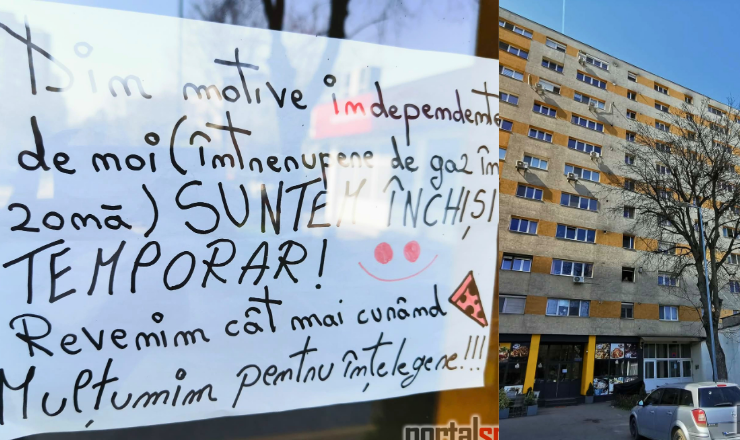 Din motive independente
de noi (întrerupere de gaz în
zonă) SUNTEM ÎNCHIȘI
TEMPORAR!
Revenim cât mai curând
Mulțumim pentru înțelegere!!!
portalsm